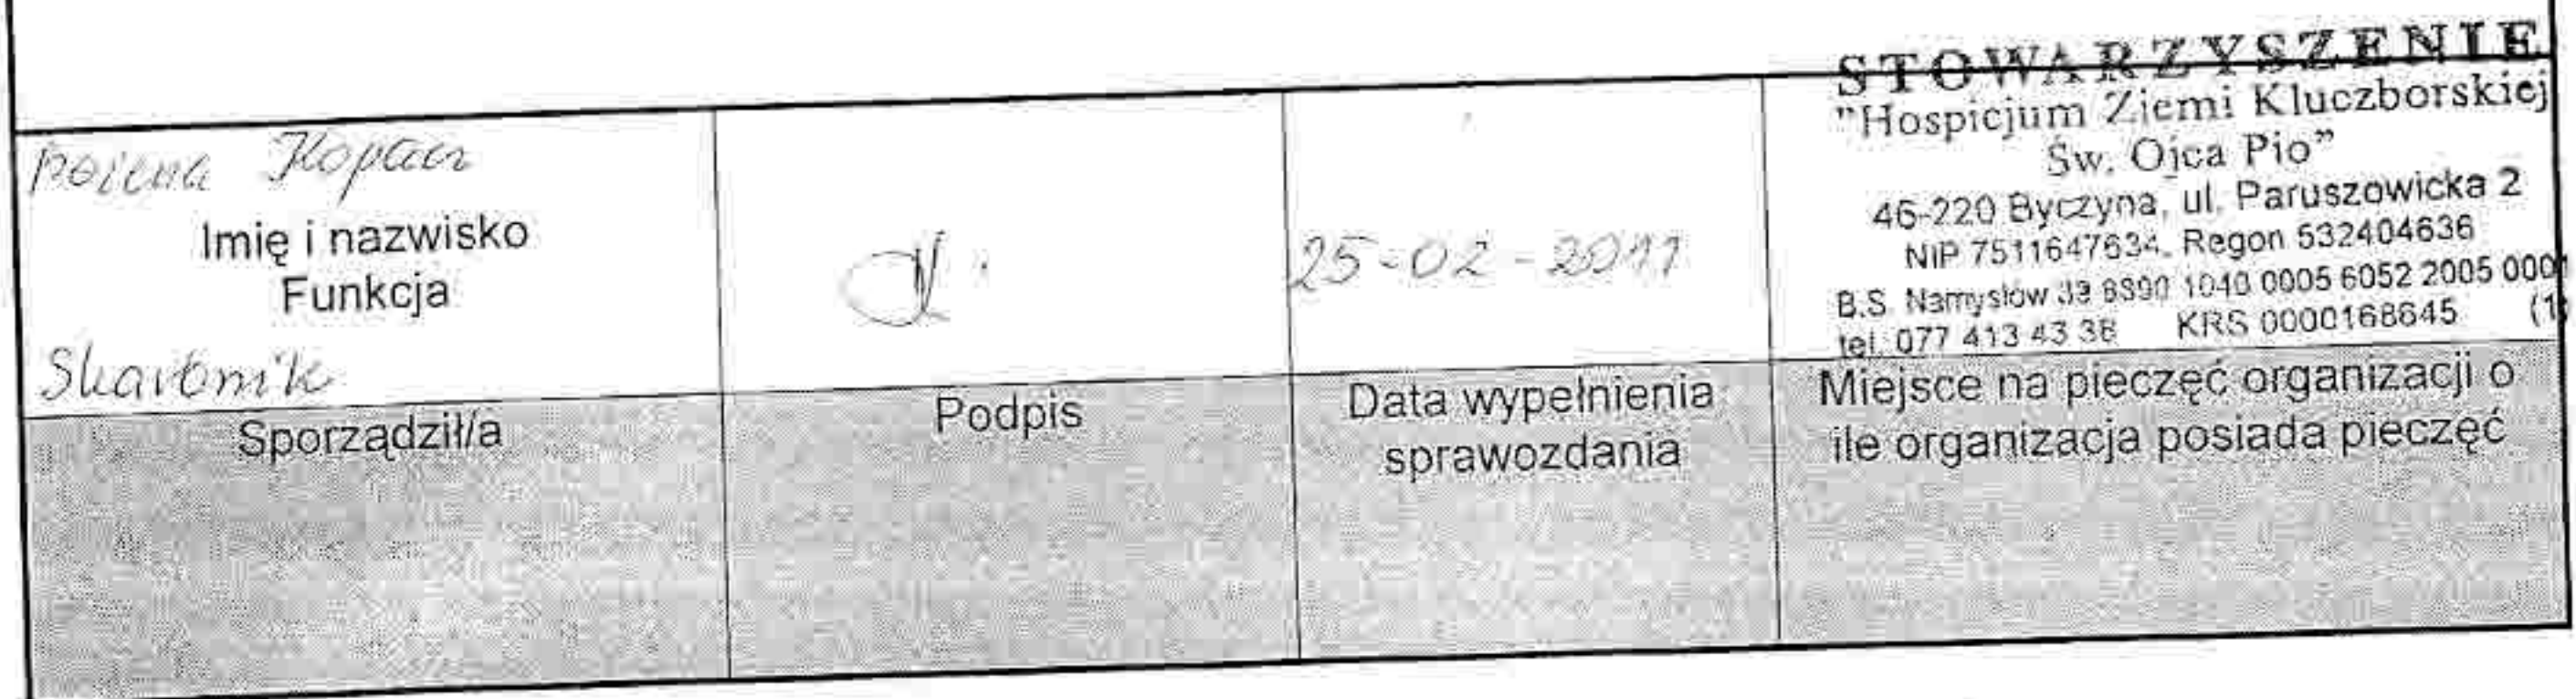 Bożena Kopacz
Imię i nazwisko
Funkcja
Skarbnik
25-02-2011
STOWARZYSZENIE
"Hospicjum Ziemi Kluczborskiej
Św. Ojca Pio"
46-220 Byczyna, ul. Paruszowicka 2
NIP 7511647634, Regon 532404636
B.S. Namysłów 8890 1040 0005 6052 2005 0001
tel. 077 413 43 38 KRS 0000168645 (1)
Sporządził/a
Podpis
Data wypełnienia
sprawozdania
Miejsce na pieczęć organizacji o
ile organizacja posiada pieczęć